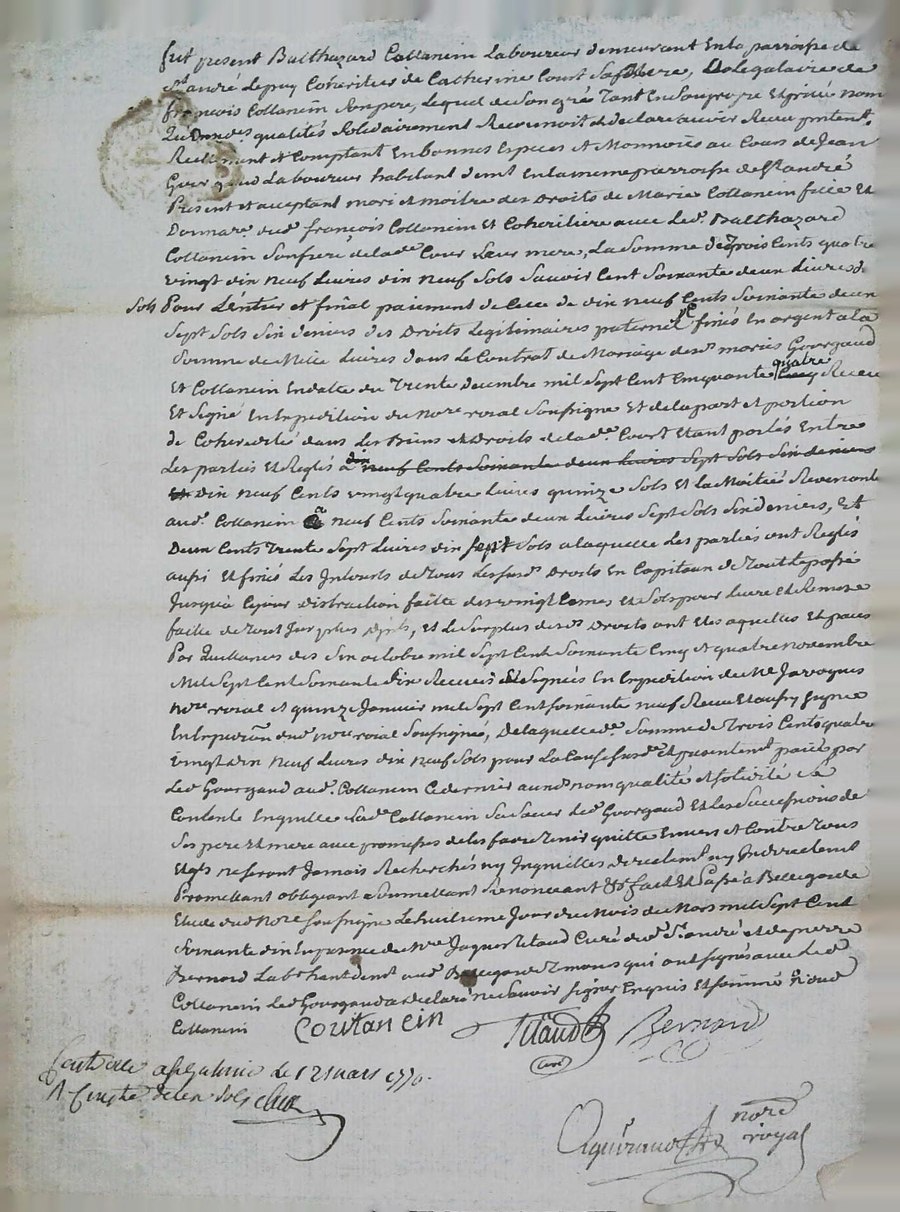 fut present Balthazard Collancin Laboureur demeurant En la parroisse de
St. andré Lepuy Coheritier de Catherine Court Sa mere, Et Legataire de
françois Collancin Son pere, Lequel de Son gré Tant En Son propre Et privé nom
qualités Solidairement Reconnoit et declare avoir Receu ptent.
Reellement et Comptant En bonnes Especes et Monnoies au Cours de Jean
Gourgaud Laboureur habitant demt. En la meme parroisse de St andré
Present et acceptant mari et maitre des Droits de Marie Collancin fille Et
Donnare. dud. françois Collancin Et Coheritiere avec Led. Balthazard
Collancin Son frere de lade. Cour Leur mere, La Somme de Trois Cents quatre
vingt dix neuf Livres dix neuf Sols Sauoir Cent Soixante deux Livres
Sols Pour L'entier et final paiement de Celle de dix neuf Cents Soixante deux
Sept Sols Six deniers des Droits Legitimaires paternel fixés En argent a La
Somme de Mille Livres dans Le Contrat de Mariage des d. mariés Gourgaud
Et Collancin En datte du Trente decembre mil Sept Cent Cinquante quatre Receu
Et Signé En Expedition du Nore. roial Soussigné Et de la part et portion
de Coheredité dans Les Biens et Droits de lade. Court Etant portés Entre
Les parties Et Reglés a dix neuf Cents Soixante deux Livres Sept Sols Six deniers
dix neuf Cents vingt quatre Livres quinze Sols Et la Moitié Revenante
aud. Collancin a neuf Cents Soixante deux Livres Sept Sols Six deniers, Et
Deux Cents Trente Sept Livres dix Sept Sols a laquelle Les parties ont Reglés
aussi Et fixés Les Interets de Tous Les susd. Droits En Capitaux de Tout Le passé
Jusqu'a Ce jour distraction faitte des vingtiemes Et Sols pour Livre Et Remise
faitte de Tout Surplus, Et Le Surplus des d. Droits ont Etes aquités Et paiés
Par Quittances des Six octobre mil Sept Cent Soixante Cinq et quatre novembre
Mil Sept Cent Soixante dix Receuës Et Signées En Expedition de Me Jarrogues
Nore. roial et quinze Janvier mil Sept Cent soixante neuf Receu Et aussy signée
En Expedion. dud. Nore. roial Soussigné, De laquelle de. Somme de Trois Cents quatre
vingt dix Neuf Livres dix Neuf Sols pour La Cause susd. Et presentemt. paiée par
Led. Gourgaud aud. Collancin Ce dernier aux d. nom qualité et solicité Se
Contente En quitte Lad. Collancin Sa Sœur Led. Gourgaud Et Les Successions de
Ses pere Et mere avec promesse de Les faire Tenir quitte Envers et Contre Tous
Et qu'ils ne seront Jamais Recherchés ny Inquiettés directemt. ny Indirectemt
Promettant obligeant Soumettant Renonceant fait Et Passé a Bellegarde
Etude dud. Nore. Soussigné Le huitieme Jour du Mois de Mars mil Sept Cent
Soixante dix En presence de Mre Jaques Titaud Curé dud. St. andré et de pierre
Bernard Labr. hant. demt. aud. Bellegarde Temoins qui ont Signés avec Led.
Collancin Led. Gourgaud a declaré ne Savoir Signer Enquis Et sommé
Collancin
Coultancin Titaud Bernard
Curé
Controllé a le 12 mars 1770.
Aguiraud nore
royal